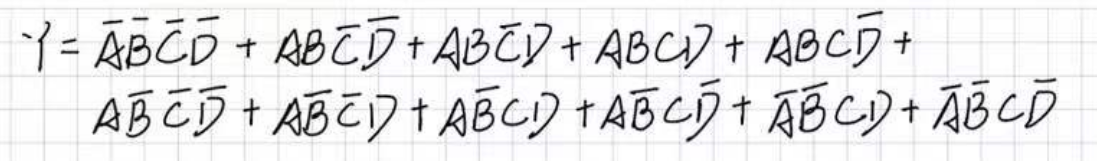 Y = A̅B̅C̅D̅ + ABC̅D̅ + ABC̅D + ABCD + ABCD̅ +
AB̅C̅D̅ + AB̅C̅D + AB̅CD + AB̅CD̅ + A̅B̅CD + A̅B̅CD̅